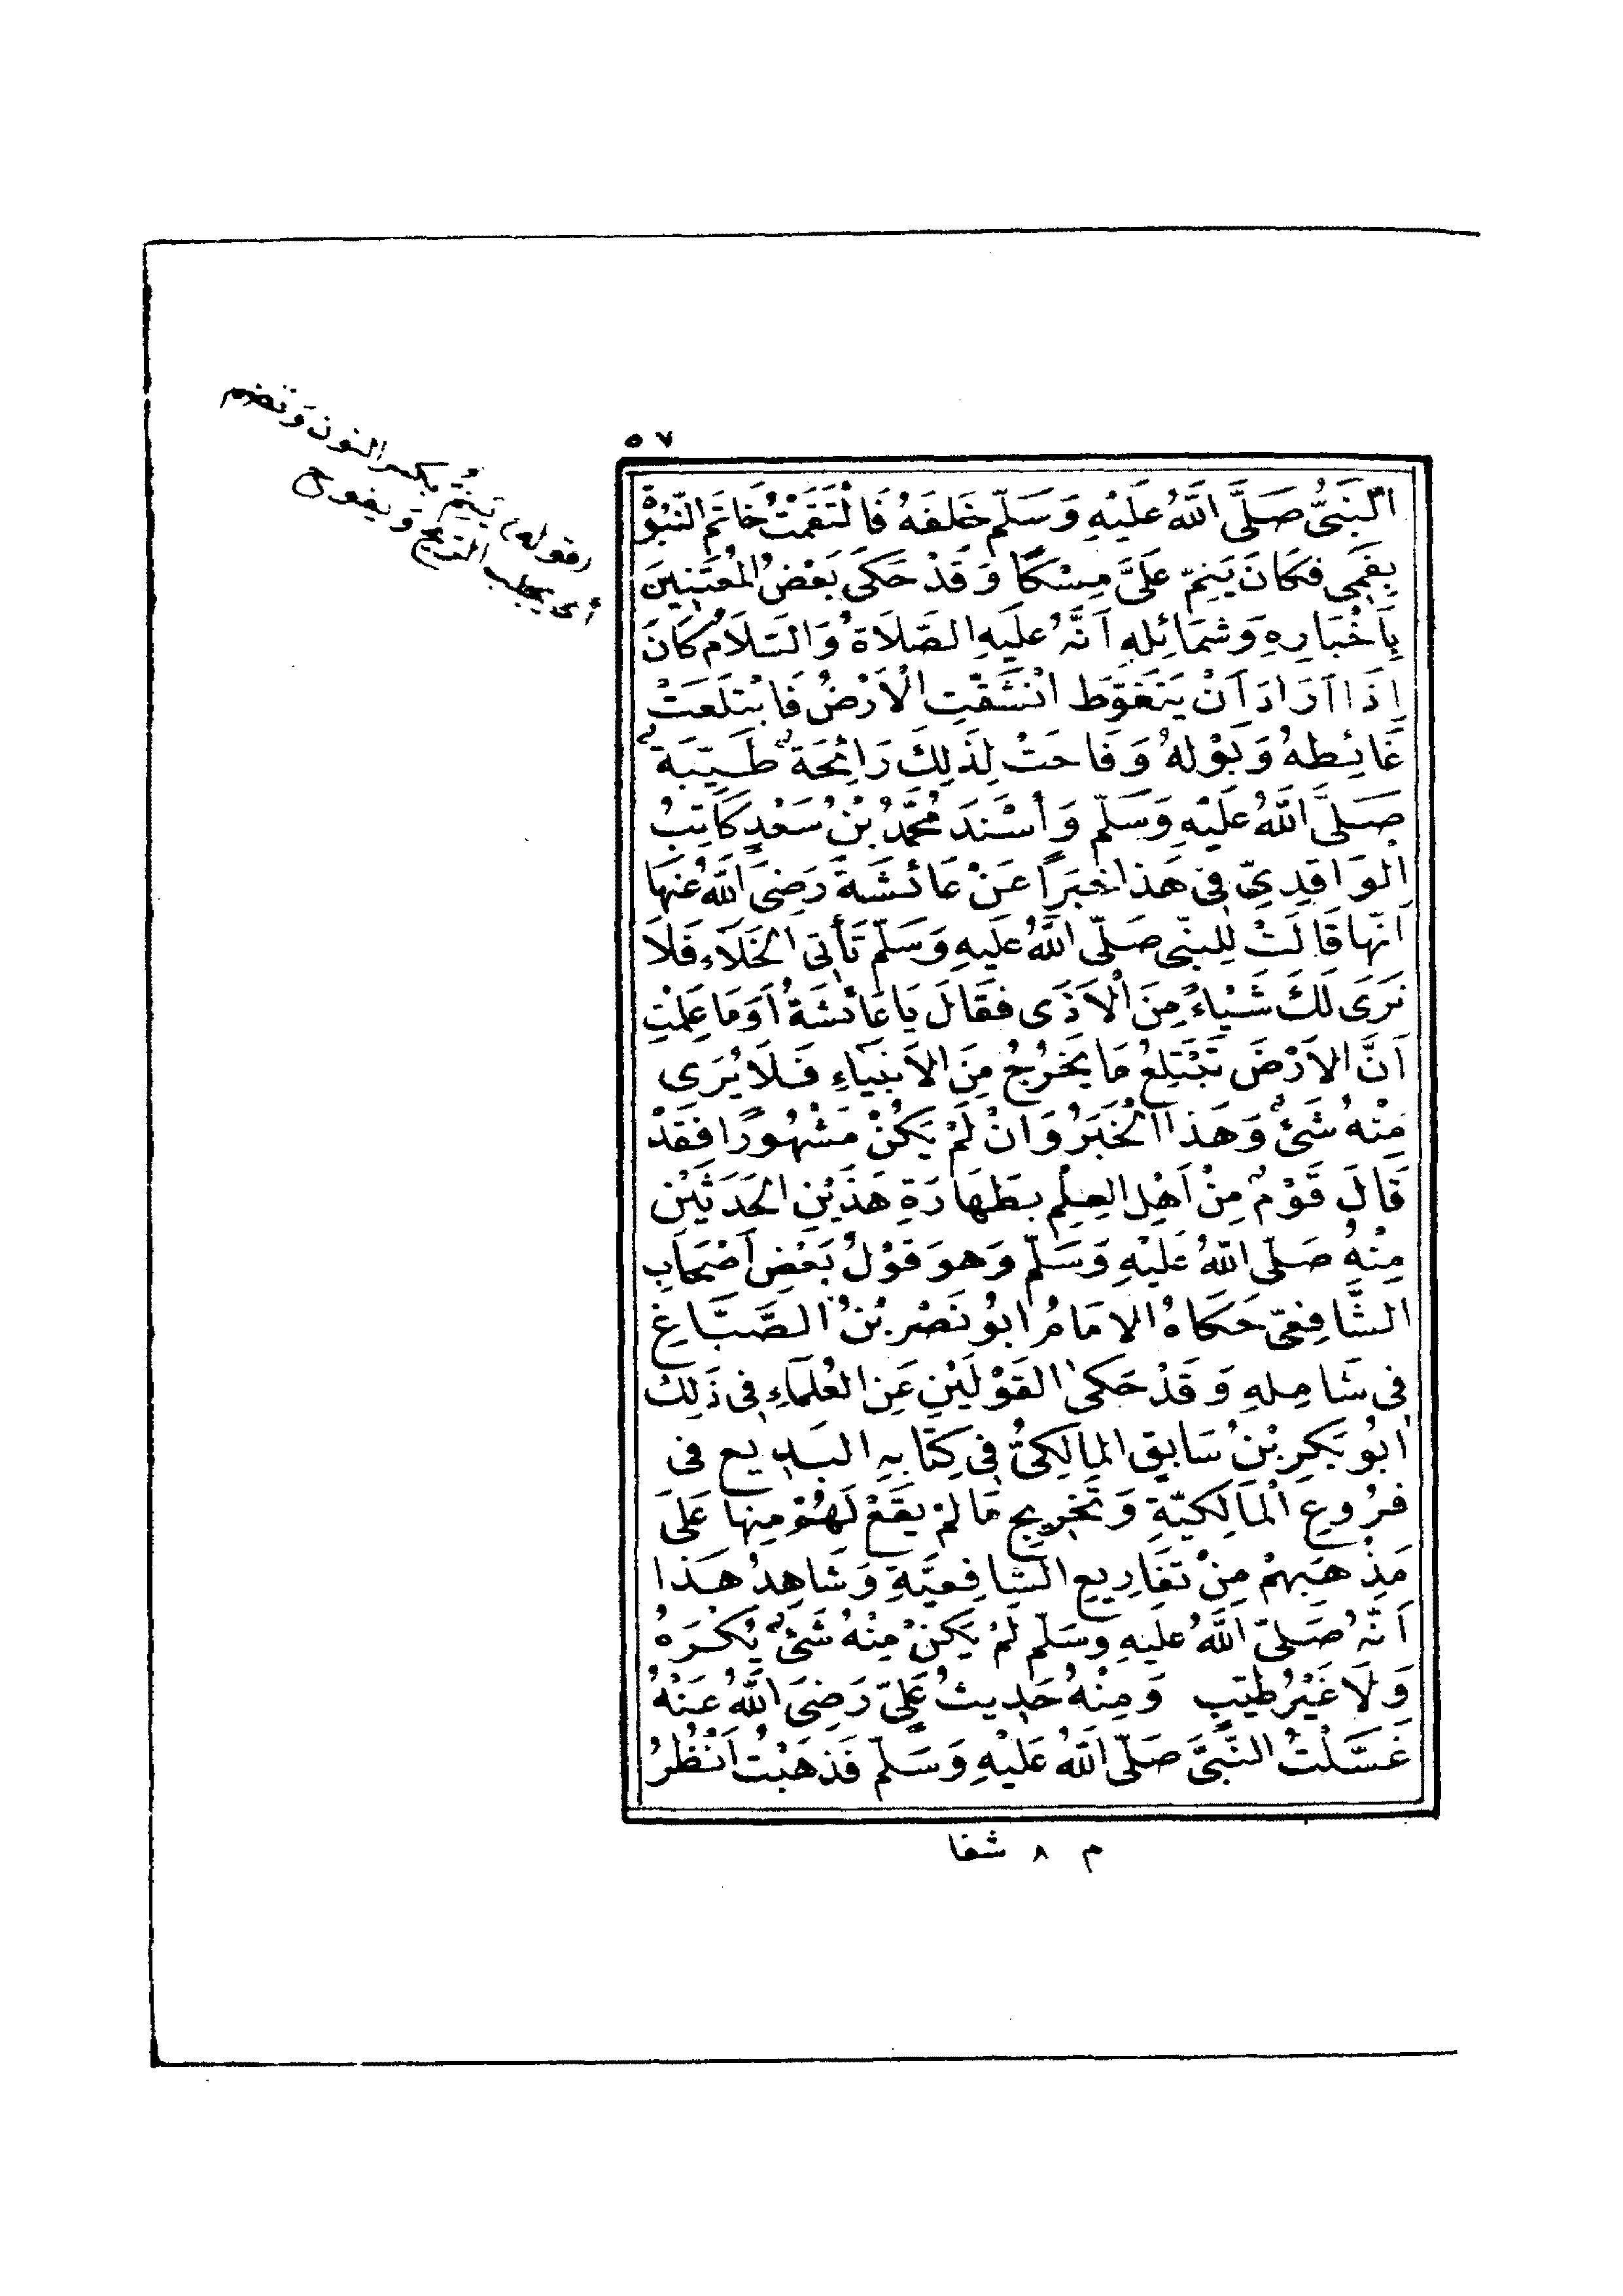 ٥٧
النَّبِيُّ صَلَّى اللهُ عَلَيْهِ وَسَلَّمَ خَلْفَهُ فَالْتَقَمْتُ خَاتَمَ النُّبُوَّ
بِفَمِي فَكَانَ يَنِمُّ عَلَيَّ مِسْكًا وَقَدْ حَكَى بَعْضُ الْمُعْتَنِينَ
بِأَخْبَارِهِ وَشَمَائِلِهِ أَنَّهُ عَلَيْهِ الصَّلَاةُ وَالسَّلَامُ كَانَ
إِذَا أَرَادَ أَنْ يَتَغَوَّطَ انْشَقَّتِ الْأَرْضُ فَابْتَلَعَتْ
غَائِطَهُ وَبَوْلَهُ وَفَاحَتْ لِذَلِكَ رَائِحَةٌ طَيِّبَةٌ
صَلَّى اللهُ عَلَيْهِ وَسَلَّمَ وَأَسْنَدَ مُحَمَّدُ بْنُ سَعْدٍ كَاتِبُ
الْوَاقِدِيِّ فِي هَذَا خَبَرًا عَنْ عَائِشَةَ رَضِيَ اللهُ عَنْهَا
أَنَّهَا قَالَتْ لِلنَّبِيِّ صَلَّى اللهُ عَلَيْهِ وَسَلَّمَ تَأْتِي الْخَلَاءَ فَلَا
نَرَى لَكَ شَيْئاً مِنَ الْأَذَى فَقَالَ يَا عَائِشَةُ أَوَمَا عَلِمْتِ
أَنَّ الْأَرْضَ تَبْتَلِعُ مَا يَخْرُجُ مِنَ الْأَنْبِيَاءِ فَلَا يُرَى
مِنْهُ شَيْءٌ وَهَذَا الْخَبَرُ وَإِنْ لَمْ يَكُنْ مَشْهُورًا فَقَدْ
قَالَ قَوْمٌ مِنْ أَهْلِ الْعِلْمِ بِطَهَارَةِ هَذَيْنِ الْحَدَثَيْنِ
مِنْهُ صَلَّى اللهُ عَلَيْهِ وَسَلَّمَ وَهُوَ قَوْلُ بَعْضِ أَصْحَابِ
الشَّافِعِيِّ حَكَاهُ الْإِمَامُ أَبُو نَصْرِ بْنُ الصَّبَّاغِ
فِي شَامِلِهِ وَقَدْ حَكَى الْقَوْلَيْنِ عَنِ الْعُلَمَاءِ فِي ذَلِكَ
أَبُو بَكْرِ بْنُ سَابِقٍ الْمَالِكِيُّ فِي كِتَابِهِ الْبَدِيعِ فِي
فُرُوعِ الْمَالِكِيَّةِ وَتَخْرِيجِ مَا لَمْ يَقَعْ لَهُمْ مِنْهَا عَلَى
مَذْهَبِهِمْ مِنْ تَفَارِيعِ الشَّافِعِيَّةِ وَشَاهِدُ هَذَا
أَنَّهُ صَلَّى اللهُ عَلَيْهِ وَسَلَّمَ لَمْ يَكُنْ مِنْهُ شَيْءٌ يُكْرَهُ
وَلَا غَيْرُ طَيِّبٍ وَمِنْهُ حَدِيثُ عَلِيٍّ رَضِيَ اللهُ عَنْهُ
غَسَّلْتُ النَّبِيَّ صَلَّى اللهُ عَلَيْهِ وَسَلَّمَ فَذَهَبْتُ أَنْظُرُ
م ٨ شفا
(قوله) يَنِمُّ بكسر النون وتضم
أي يجلب الريح ويفوح